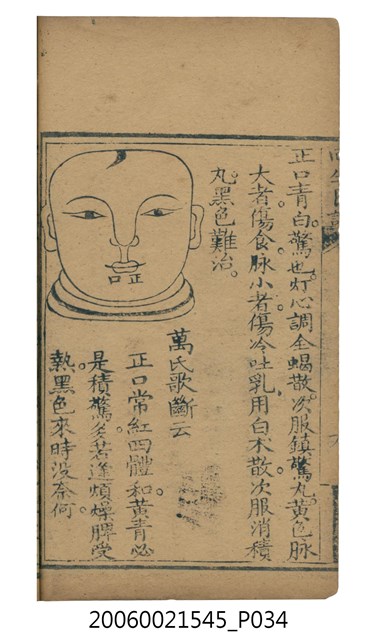 正口青白。驚也。灯心調全蝎散。次服鎮驚丸。黃色脉
大者。傷食。脉小者。傷冷吐乳。用白术散。次服消積
丸。黑色難治。
正口
萬氏歌斷云
正口常紅四體和。黃青必
是積驚多。若逢煩燥脾受
熱。黑色來時没奈何。
20060021545_P034